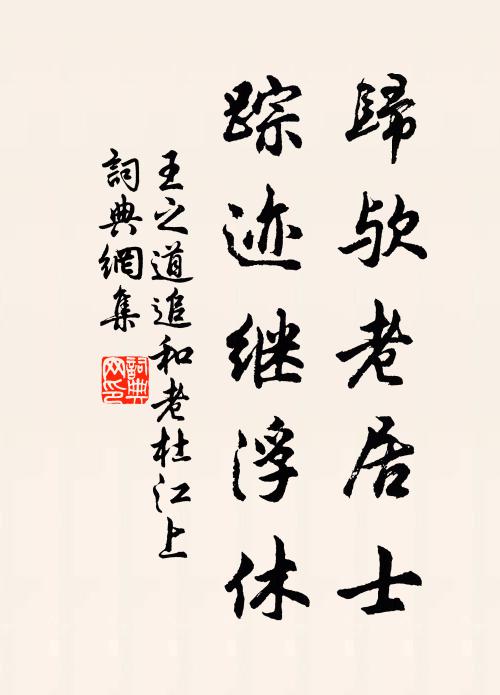 歸欤老居士
踪迹继浮休
王之道追和老杜江上
詞典網集
詞典网印